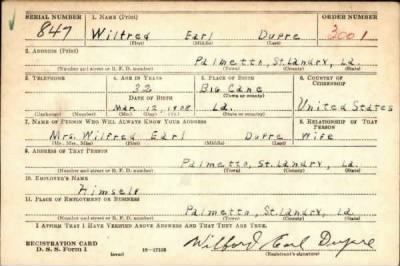 SERIAL NUMBER 1. NAME (Print) ORDER NUMBER
847 Wilfred Earl Dupre 3001
(First) (Middle) (Last)
2. ADDRESS (Print)
Palmetto, St. Landry, La.
(Number and street or R. F. D. number) (Town) (County) (State)
3. TELEPHONE 4. AGE IN YEARS 5. PLACE OF BIRTH 6. COUNTRY OF CITIZENSHIP
32 Big Cane
DATE OF BIRTH (Town or county)
Mar. 12, 1908 La. United States
(Exchange) (Number) (Mo.) (Day) (Yr.) (State or country)
7. NAME OF PERSON WHO WILL ALWAYS KNOW YOUR ADDRESS 8. RELATIONSHIP OF THAT PERSON
Mrs. Wilfred Earl Dupre Wife
(Mr., Mrs., Miss) (First) (Middle) (Last)
9. ADDRESS OF THAT PERSON
Palmetto, St. Landry, La.
(Number and street or R. F. D. number) (Town) (County) (State)
10. EMPLOYER'S NAME
Himself
11. PLACE OF EMPLOYMENT OR BUSINESS
Palmetto, St. Landry, La.
(Number and street or R. F. D. number) (Town) (County) (State)
I AFFIRM THAT I HAVE VERIFIED ABOVE ANSWERS AND THAT THEY ARE TRUE.
REGISTRATION CARD
D. S. S. Form 1 16—17105 Wilford Earl Dupre
(Registrant's signature)